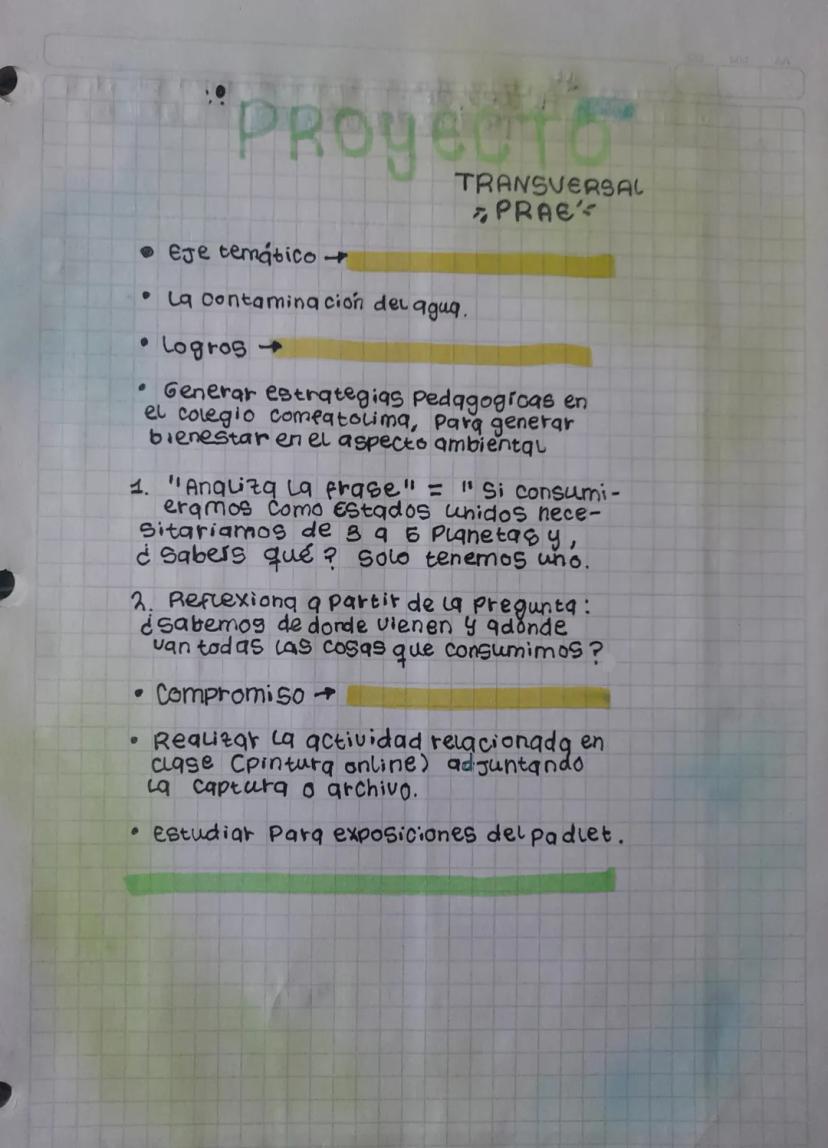 PROyECTO
TRANSVERSAL
PRAE
• Eje temático →
• La contaminación del agua.
• Logros →
• Generar estrategias Pedagogicas en
el colegio comfatolima, Para generar
bienestar en el aspecto ambiental
1. "Analiza La frase" = "Si consumi-
eramos como Estados unidos nece-
sitariamos de 3 a 5 Planetas y,
¿Sabeis qué? Solo tenemos uno.
2. Reflexiona a partir de la pregunta:
¿sabemos de donde vienen y adónde
van todas las cosas que consumimos?
• Compromiso →
• Realizar la actividad relacionada en
clase (pintura online) adjuntando
la captura o archivo.
• Estudiar Para exposiciones del padlet.